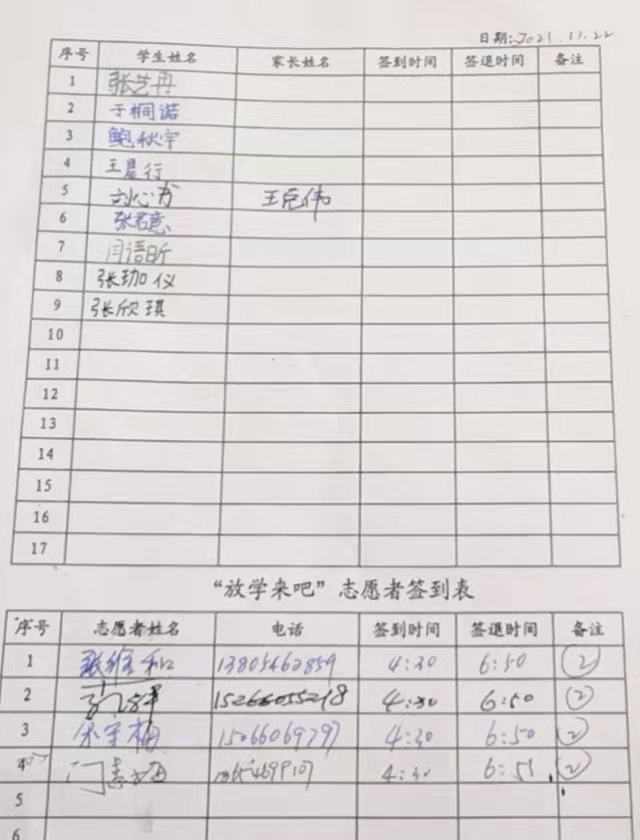 日期:2021.11.22
序号 学生姓名 家长姓名 签到时间 签退时间 备注
1 张艺冉
2 于桐诺
3 鲍秋宇
4 王晨行
5 刘心 王 伟
6 张若意
7 闫语昕
8 张珈仪
9 张欣琪
10
11
12
13
14
15
16
17
“放学来吧”志愿者签到表
序号 志愿者姓名 电话 签到时间 签退时间 备注
1 张维和 13805462859 4:30 6:50 ②
2 15266055218 4:30 6:50 ②
3 梅 15066069797 4:30 6:50 ②
4 4:30 6:55 ②
5
6